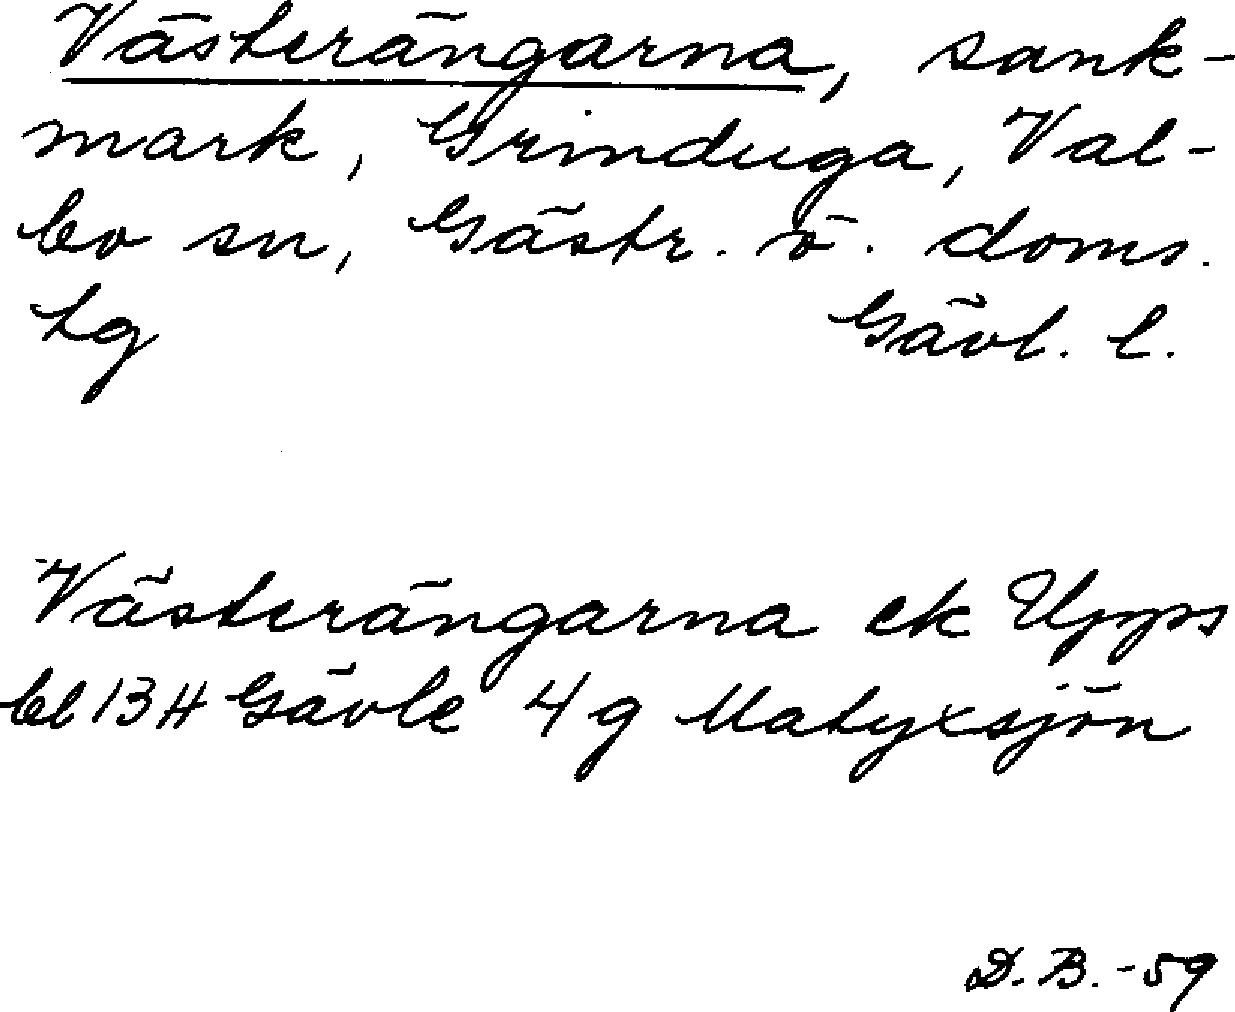 Västerängarna, sank-
mark, Grinduga, Val-
bo sn, Gästr. ö. doms.
tg Gävl. l.
Västerängarna ek Upps
bl 13 H Gävle 4 g Matyxsjön
D. B. -59